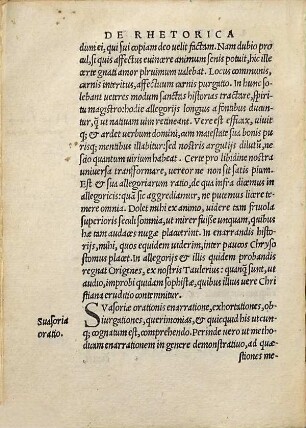 DE RHETORICA
dum ei, qui sui copiam deo uelit factum. Nam dubio pro
cul, si quis affectus euincere animum senis potuit, hic ille
certe gnati amor plurimum ualebat. Locus communis,
carnis interitus, affectuum carnis purgatio. In hunc so
lebant ueteres modum sanctas historias tractare, spiri
tu magistro: hodie allegorijs longius a fontibus diuan
tur, qm ut natiuam uim retineant. Vere est efficax, uiuit
q; & ardet uerbum domini, cum maiestate sua bonis pu
risq; mentibus illabitur: sed nostris argutijs dilutū, ne
scio quantum uirium habeat. Certe pro libidine nostra
uniuersa transformare, uereor ne non sit satis pium.
Est & sua allegoriarum ratio, de qua infra dicemus in
allegoricis: quā sic aggrediamur, ne putemus licere te
mere omnia. Dolet mihi ex animo, uidere tam friuola
superioris seculi somnia, ut mirer fuisse unquam, quibus
hæ tam audaces nugæ placuerint. In enarrandis histo
rijs, mihi, quos equidem uiderim, inter paucos Chryso
stomus placet. In allegorijs & illis quidem probandis
regnat Origenes, ex nostris Taulerius: quanq̄ sunt, ut
audio, improbi quidam sophistæ, quibus illius uere Chri
stiana eruditio contemnitur.
Suasoria
oratio.
SVasoriæ orationis enarratione, exhortationes, ob
iurgationes, querimonias, & quicquid his utcun
q; cognatum est, comprehendo. Perinde uero ut metho
dicam enarrationem in genere demonstratiuo, ad quæ
stiones me-